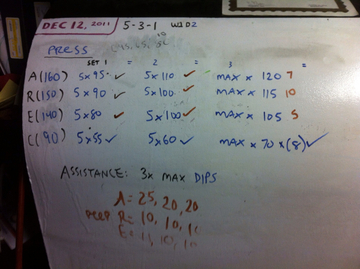 DEC 12, 2011 5-3-1 W1D2
PRESS
SET 1 = 2 = 3 =
A(160) 5x95 ✓ 5x110 ✓ MAX x 120 7
R(150) 5x90 ✓ 5x100 ✓ MAX x 115 10
E(140) 5x80 ✓ 5x100 ✓ MAX x 105 5
C(90) 5x55 ✓ 5x60 ✓ MAX x 70 x(8) ✓
ASSISTANCE: 3x MAX DIPS
A = 25, 20, 20
R = 10, 10,
E = 11, 10, 10